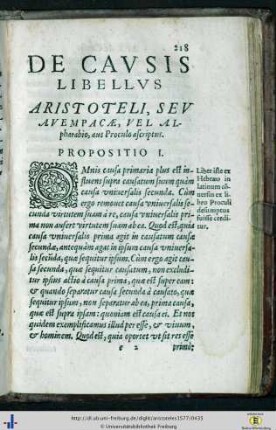 218
DE CAVSIS
LIBELLVS
ARISTOTELI, SEV
AVEMPACÆ, VEL AL-
pharabio, aut Proculo ascriptus.
PROPOSITIO I.
OMnis causa primaria plus est in-
fluens supra causatum suum quàm
causa vniuersalis secunda. Cùm
ergo remouet causa vniuersalis se-
cunda virtutem suam à re, causa vniuersalis pri-
ma non aufert virtutem suam ab ea. Quod est, quia
causa vniuersalis prima agit in causatum causæ
secundæ, antequàm agat in ipsum causa vniuersa-
lis secũda, quæ sequitur ipsam. Cùm ergo agit cau-
sa secunda, quæ sequitur causatum, non excludi-
tur ipsius actio à causa prima, quæ est supra eam:
& quando separatur causa secunda à causato, quæ
sequitur ipsum, non separatur ab eo, prima causa,
quæ est supra ipsam: quoniam est causa ei. Et nos
quidem exemplificamus illud per esse, & viuum,
& hominem. Quod est, quia oportet vt sit res esse
e 2 primò:
Liber iste ex
Hebræo in
latinum cõ-
uersus ex li-
bro Proculi
desumptus
fuisse credi-
tur.
http://dl.ub.uni-freiburg.de/diglit/aristoteles1577/0435
© Universitätsbibliothek Freiburg